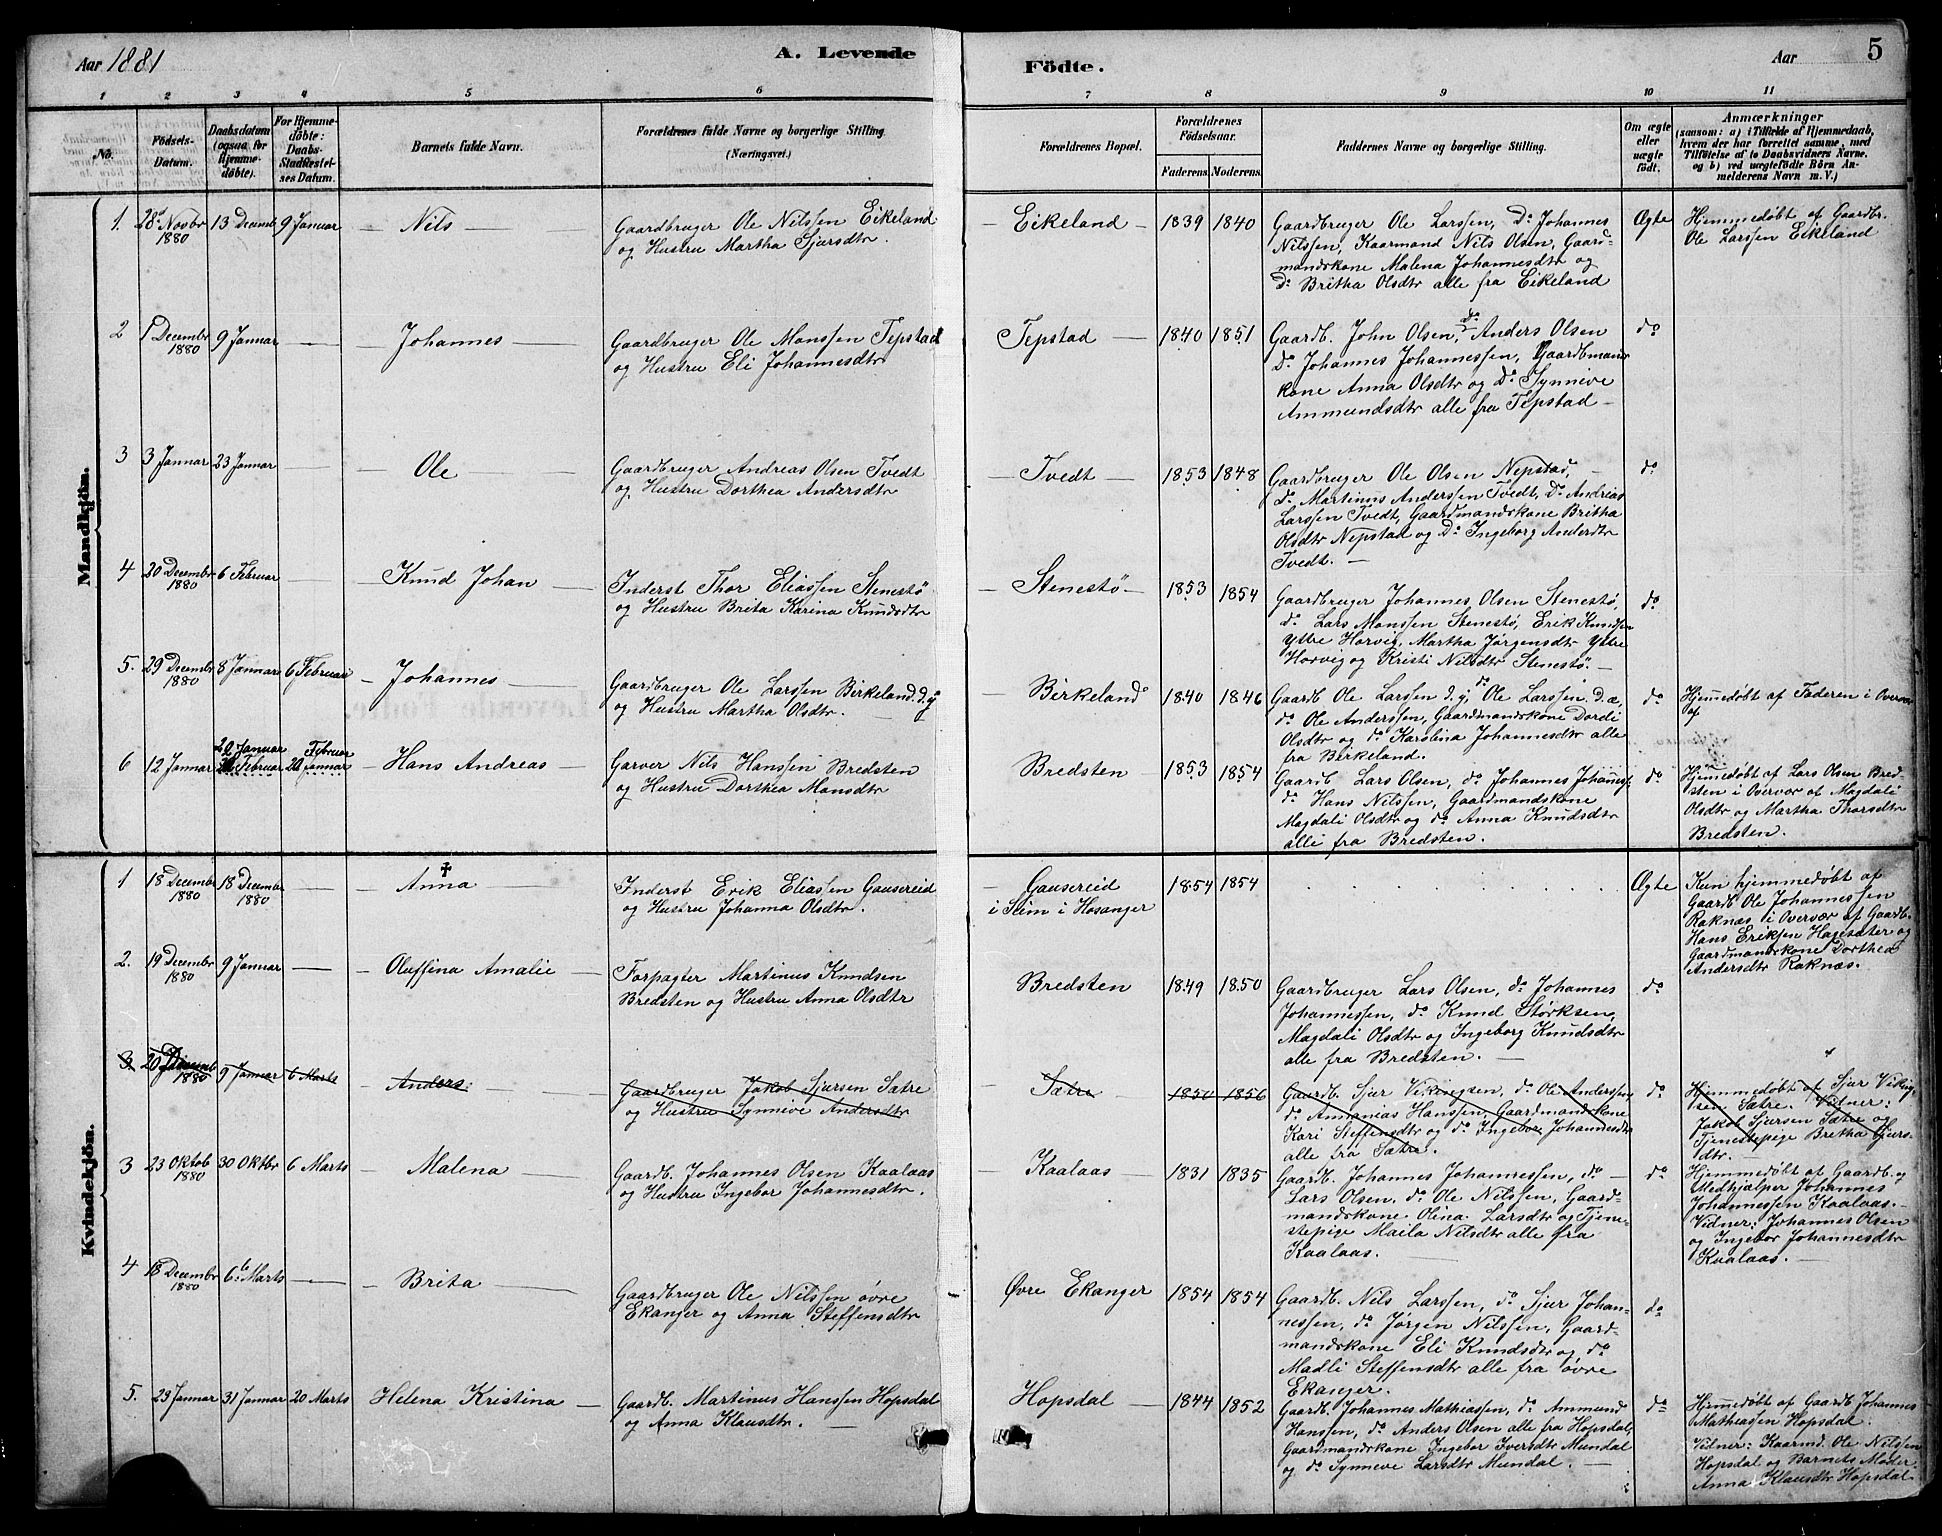 Aar 1881
A. Levende
Födte.
Aar
5
1 2 3 4 5 6 7 8 9 10 11
No.
Födsels-
Datum.
Daabsdatum
(ogsaa for
Hjemme-
döbte).
For Hjemme-
döbte:
Daabs-
Stadfæstel-
ses Datum.
Barnets fulde Navn.
Forældrenes fulde Navne og borgerlige Stilling.
(Næringsvei.)
Forældrenes Bopæl.
Forældrenes
Födselsaar.
Faderens. Moderens.
Faddernes Navne og borgerlige Stilling.
Om ægte
eller
uægte
födt.
Anmærkninger
(saasom: a) i Tilfælde af Hjemmedaab,
hvem der har forrettet samme, med
Tilföielse af to Daabsvidners Navne.
og b) ved uægtefödte Börn An-
melderens Navn m. V.)
Mandkjön.
1. 28d Novbr 1880
13 Decemb
9 Januar
Nils
Gaardbruger Ole Nilssen Eikeland
og Hustru Martha Sjursdtr.
Eikeland
1839 1840
Gaardbruger Ole Larssen, Do Johannes
Nilssen, Kaarmand Nils Olsen, Gaard-
mandskone Malena Johannesdtr og
Do Britha Olsdtr alle fra Eikeland
Ægte
Hjemmedøbt af Gaardbr.
Ole Larssen Eikeland
2 1 Decembr 1880
9 Januar
Johannes
Gaardbruger Ole Monssen Tepstad
og Hustru Eli Johannesdtr
Tepstad
1840 1851
Gaardb. John Olsen, do Anders Olsen
Do Johannes Johannessen, Gaardmands
kone Anna Olsdtr og Do Synneve
Ammundsdtr alle fra Tepstad
do
3 3 Januar
23 Januar
Ole
Gaardbruger Andreas Olsen Tvedt
og Hustru Dorthea Andersdtr
Tvedt
1853 1848
Gaardbruger Ole Olsen Nepstad,
do Martinus Anderssen Tvedt, Do Andreas
Larssen Tvedt, Gaardmandskone Britha
Olsdtr Nepstad og Do Ingeborg Anderdtr
Tvedt.
do
4 20 Decembr 1880
6 Februar
Knud Johan
Inderst Thor Eliassen Stenestø
og Hustru Brita Karina Knudsdtr
Stenestø
1853 1854
Gaardbruger Johannes Olsen Stenestø,
do Lars Monssen Stenestø, Erik Knudsen
Ytre Horvig, Martha Jørgensdtr Ystre
Horvig og Kristi Nilsdtr Stenestø.
do
5. 29 Decembr 1880
8 Januar
6 Februar
Johannes
Gaardbruger Ole Larssen Birkeland d.y
og Hustru Martha Olsdtr.
Birkeland
1840 1846
Gaardb Ole Larssen d. y, do Ole Larssen d. æ,
do Ole Anderssen, Gaardmandskone Dordi
Olsdtr og do Karolina Johannesdtr alle
fra Birkeland.
do
Hjemmedøbt af Faderen i Overvær
af
6 12 Januar
Hans Andreas
Garver Nils Hanssen Bredsten
og Hustru Dorthea Monsdtr
Bredsten
1853 1854
Gaardb Lars Olsen, do Johannes Johannes,
do Hans Nilssen, Gaardmandskone
Magdali Olsdtr og do Anna Knudsdtr
alle fra Bredsten.
do
Hjemmedøbt af Lars Olsen Bred-
sten i Overvær af Magdali
Olsdtr og Martha Thorsdtr
Bredsten.
Kvindekjön.
1 18 Decembr 1880
18 Decembr 1880
Anna
Inderst Erik Eliassen Gausereid
og Hustru Johanna Olsdtr.
Gausereid
i Seim i Hosanger
1854 1854
Ægte
Kun hjemmedøbt af
Gaardb Ole Johannessen
Raknæs i Overvær af Gaardb.
Hans Eriksen Hagesæter og
Gaardmandskone Dorthea
Andersdtr Raknæs.
2. 19 Decembr 1880
9 Januar
Oluffina Amalie
Forpagter Martinus Knudsen
Bredsten og Hustru Anna Olsdtr
Bredsten
1849 1850
Gaardbruger Lars Olsen, do Johannes
Johannessen, do Knud Størksen,
Magdali Olsdtr og Ingeborg Knudsdtr
alle fra Bredsten.
do
3 20 Decemb 1880
9 Januar
6 Marts
Anders
Gaardbruger Jakob Sjursen Sætre
og Hustru Synneve Andersdtr
Sætre
1850 1856
Gaardb. Sjur Vikingsen, do Ole Anderssen,
do Annanias Hanssen, Gaardmandskone
Kari Steffensdtr og do Ingebor Johannesdtr
alle fra Sætre.
do
Hjemmedøbt af Sjur Viking-
sen Sætre. Vidner:
Jakob Sjursen Sætre og
Tjenestepige Bretha Sjurs-
dtr.
3 23 Oktob 1880
30 Oktbr
6 Marts
Malena
Gaardb. Johannes Olsen Kaalaas
og Hustru Ingebor Johannesdtr.
Kaalaas
1831 1835
Gaardb. Johannes Johannessen, do
Lars Olsen, do Ole Nilssen, Gaard-
mandskone Olina Larsdtr og Tjene-
stepige Maila Nilsdtr alle fra
Kaalaas.
do
Hjemmedøbt af Gaardb. og
Medhjælper Johannes
Johannessen Kaalaas.
Vidner: Johannes Olsen
og Ingebor Johannesdtr
Kaalaas.
4 18 Decembr 1880
6te Marts
Brita
Gaardbruger Ole Nilssen øvre
Ekanger og Anna Steffensdtr
Øvre Ekanger
1854 1854
Gaardb. Nils Larssen, do Sjur Johan-
nessen, do Jørgen Nilssen, Gaard-
mandskone Eli Knudsdtr og do
Madli Steffensdtr alle fra øvre
Ekanger.
do
5. 23 Januar
31 Januar
20 Marts
Helena Kristina
Gaardb. Martinus Hanssen Hopsdal
og Anna Klausdtr.
Hopsdal
1844 1852
Gaardb. Johannes Mathiassen, do Ammund
Hanssen, do Anders Olsen alle fra Hopsdal,
Gaardmandskone Ingebor Iversdtr Mundal
og do Synneve Larsdtr Mundal.
do
Hjemmedøbt af Gaardb Johannes
Mathiassen Hopsdal.
Vidner: Kaarmd. Ole Nilssen
Hopsdal og Barnets Moder
Anna Klausdtr Hopsdal